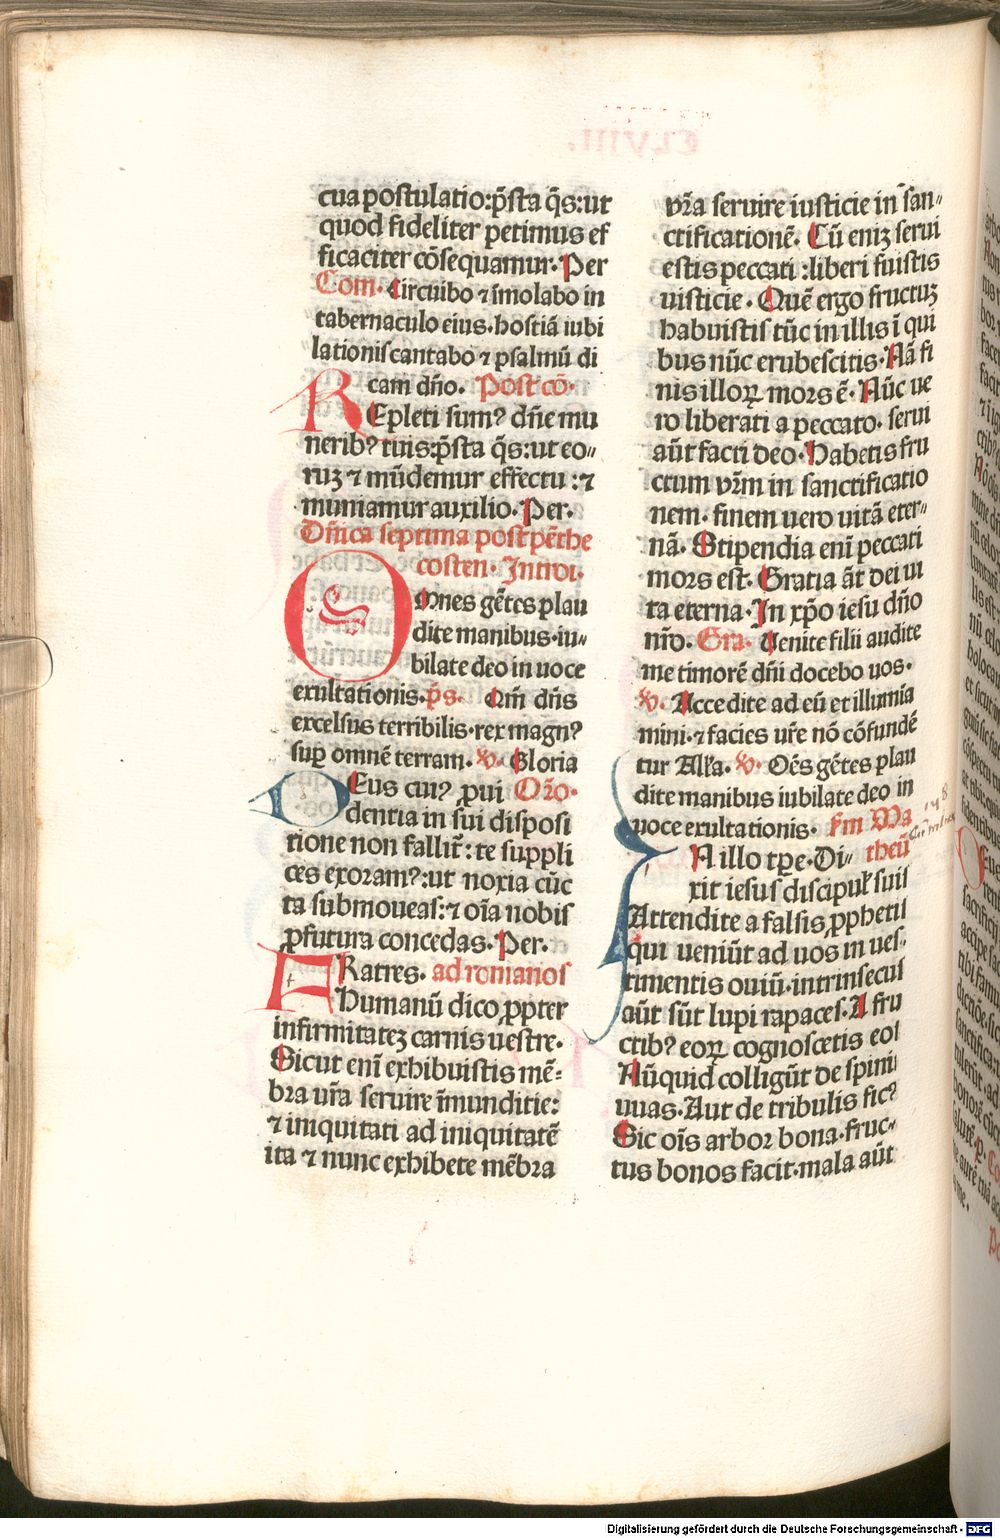 cua postulatio:p̃sta q̃s:ut
quod fideliter petimus ef
ficaciter cõsequamur. Per
Com. Circuibo ⁊ ĩmolabo in
tabernaculo eius. hostiã iubi
lationis cantabo ⁊ psalmũ di
cam dño. Post cõ.
REpleti sum⁹ dñe mu
nerib⁹ tuis:p̃sta q̃s:ut eo⸗
ruꝫ ⁊ mũdemur effectu:⁊
muniamur auxilio. Per.
Dñica septima post pẽthe
costen. Introi.
OMnes gẽtes plau
dite manibus. iu⸗
bilate deo in uoce
exultationis. p̃s. Qm̃ dñs
excelsus terribilis. rex magn⁹
suꝑ omnẽ terram. v̾. Gloria
DEus cui⁹ ꝓui Orõ.
dentia in sui disposi
tione non fallit̃: te suppli
ces exoram⁹:ut noxia cũc
ta submoueas:⁊ oĩa nobis
ꝓfutura concedas. Per.
FRatres. ad romanos
Humanũ dico ꝓpter
infirmitateꝫ carnis uestre.
Sicut enĩ exhibuistis mẽ⸗
bra ur̃a seruire ĩmunditie:
⁊ iniquitati ad iniquitatẽ
ita ⁊ nunc exhibete mẽbra
vr̃a seruire iusticie in san⸗
ctificationẽ. Cũ eniꝫ serui
estis peccati:liberi fuistis
iusticie. Quẽ ergo fructuꝫ
habuistis tũc in illis ĩ qui
bus nũc erubescitis. Nã fi
nis illoꝝ mors ẽ. Nũc ue
ro liberati a peccato. serui
aũt facti deo. Habetis fru
ctum vr̃m in sanctificatio
nem. finem uero uitã eter⸗
nã. Stipendia enĩ peccati
mors est. Gratia ãt dei ui
ta eterna. In xp̃o iesu dño
nr̃o. Gra. Venite filii audite
me timorẽ dñi docebo uos.
v̾. Accedite ad eũ et illumia
mini. ⁊ facies ur̃e nõ cõfundẽ
tur All̃a. v̾. Oẽs gẽtes plau
dite manibus iubilate deo in
uoce exultationis. s̃m Ma
IN illo tp̃e. Di⸗ theũ
xit iesus discipul̃ suis
Attendite a falsis ꝓphetis
qui ueniũt ad uos in ues⸗
timentis ouiũ. intrinsecus
aũt sũt lupi rapaces. A fru
ctib⁹ eoꝝ cognoscetis eos
Nũquid colligũt de spinis
uuas. Aut de tribulis fic⁹
Sic oĩs arbor bona. fruc⸗
tus bonos facit. mala aũt
Digitalisierung gefördert durch die Deutsche Forschungsgemeinschaft - DFG